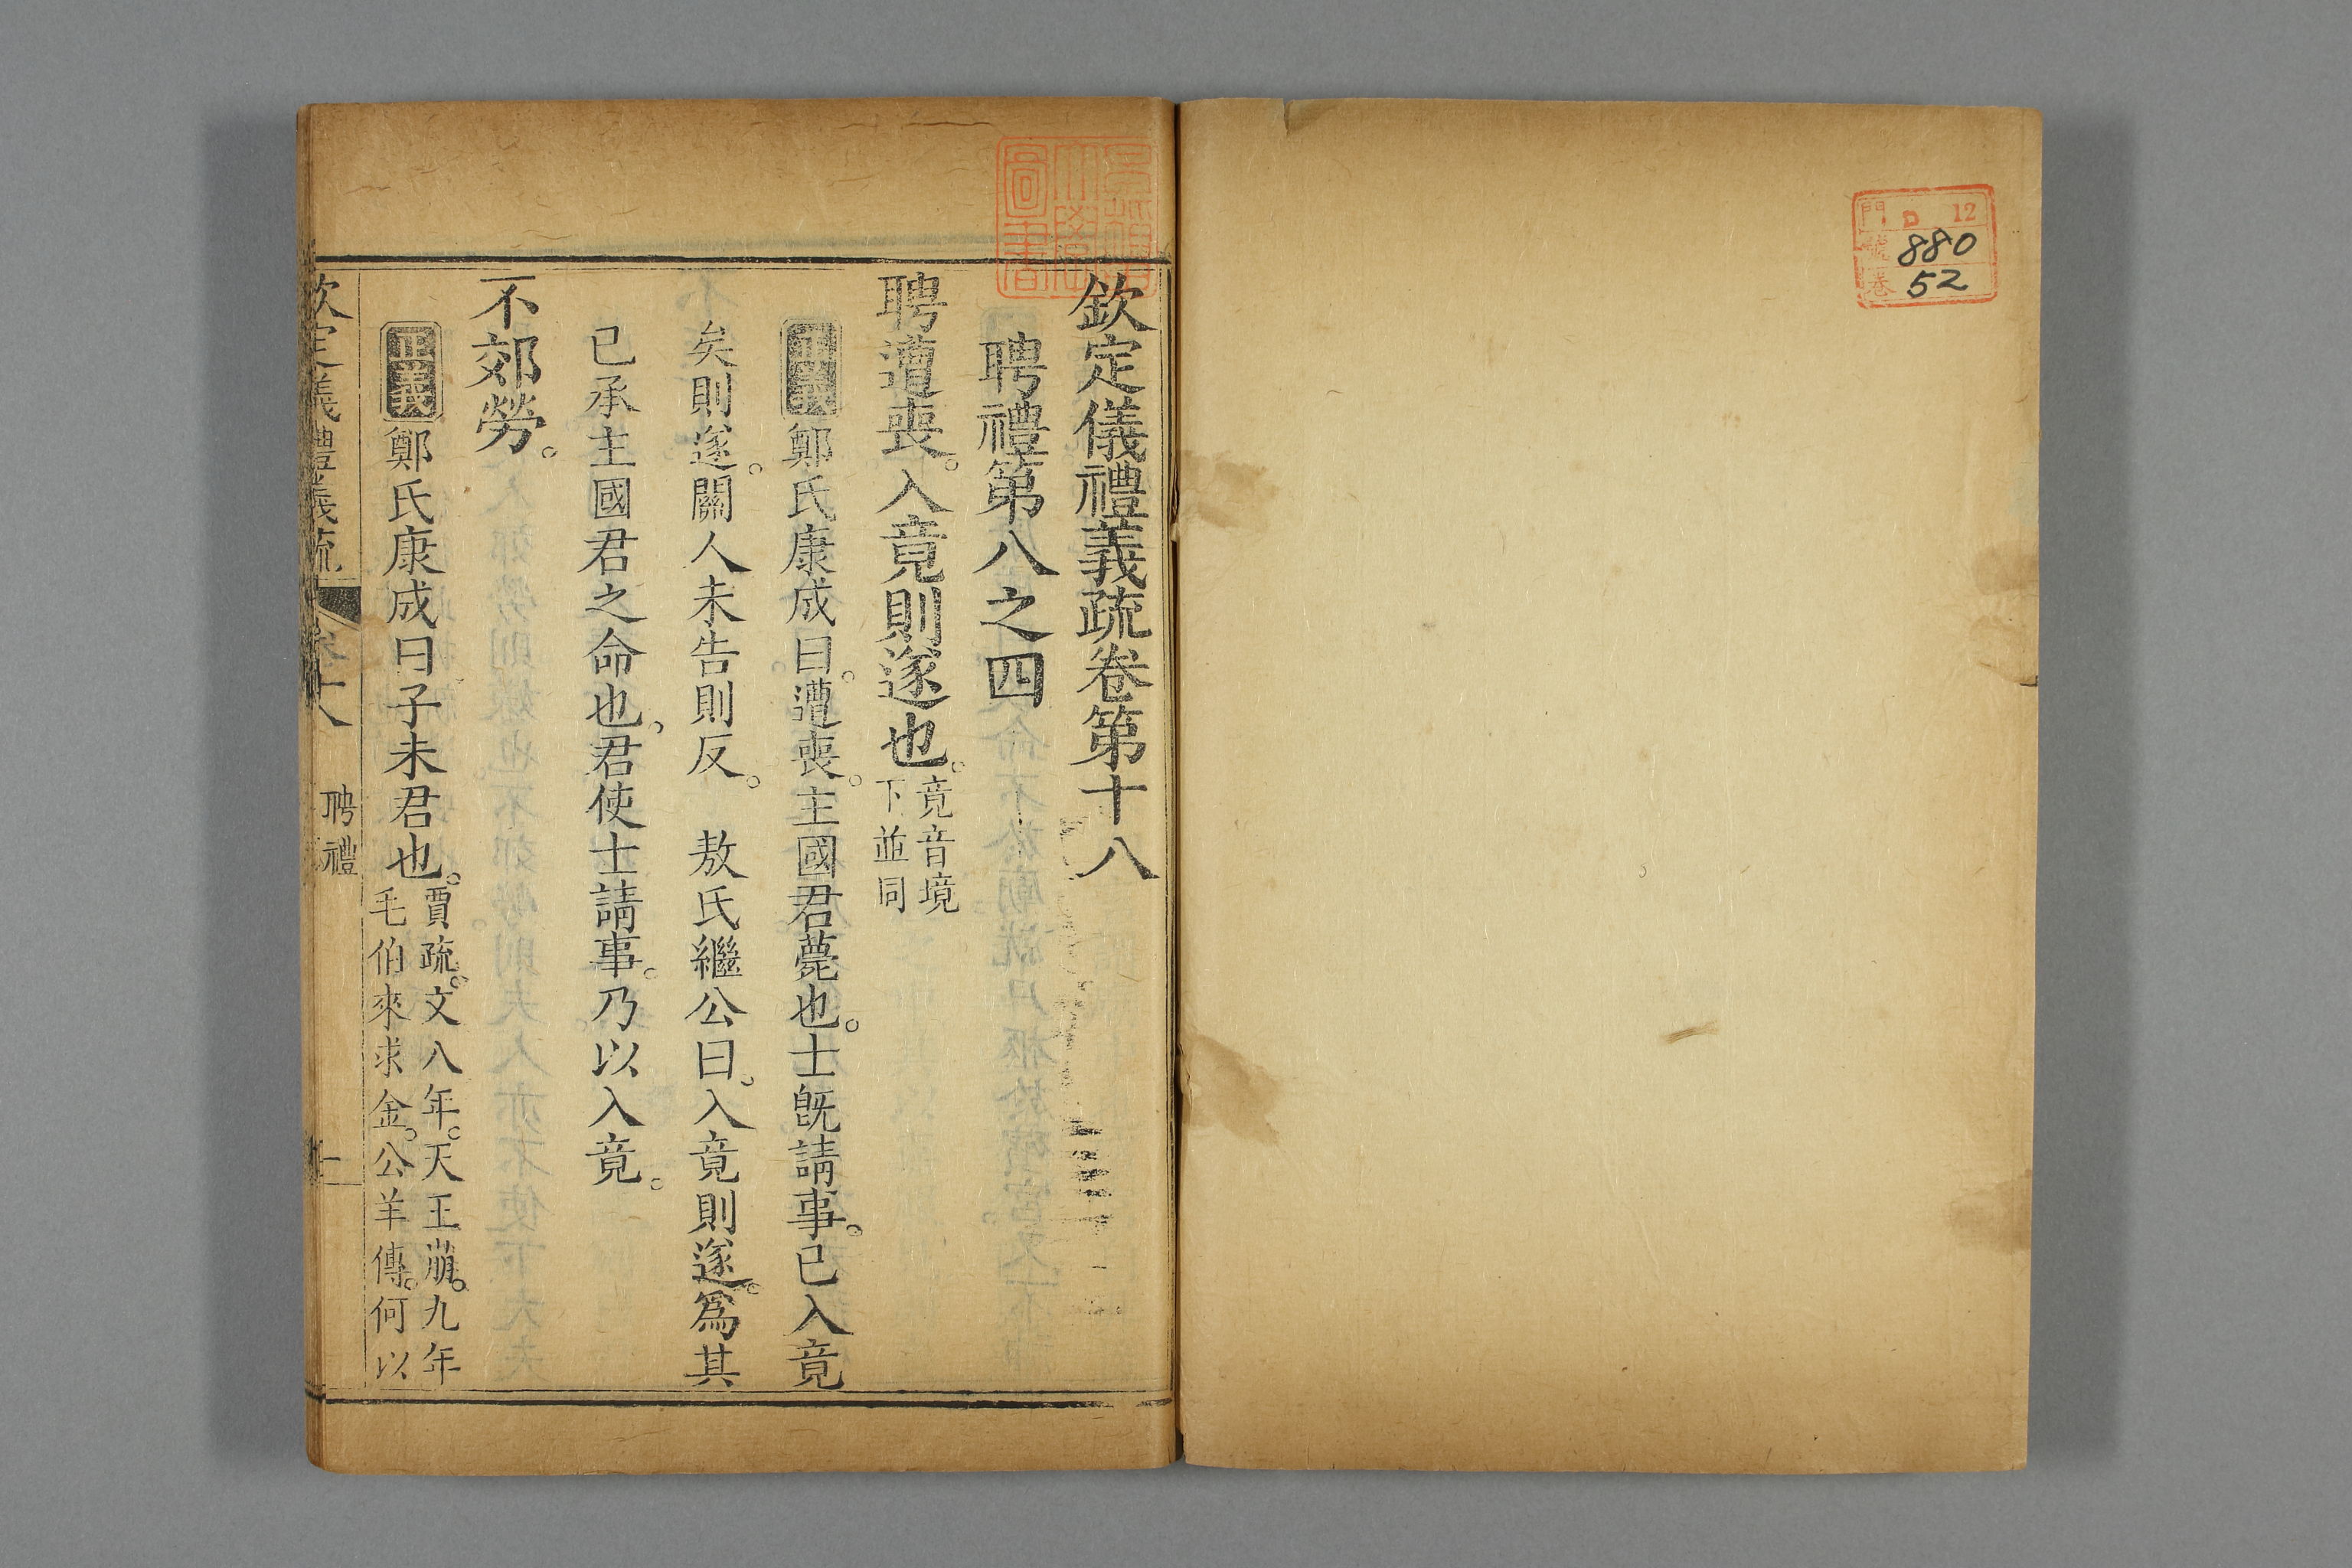 門 D 12
號 880
卷 52
欽定儀禮義疏卷第十八
聘禮第八之四
聘遭喪。入竟則遂也。竟音境
下並同
正義鄭氏康成曰。遭喪。主國君薨也。士旣請事。已入竟
矣則遂。關人未告則反。 敖氏繼公曰。入竟則遂。爲其
已承主國君之命也。君使士請事。乃以入竟。
不郊勞。
正義鄭氏康成曰子未君也。賈疏。文八年。天王崩。九年
毛伯來求金。公羊傳。何以
欽定儀禮義疏 卷十八 聘禮 一